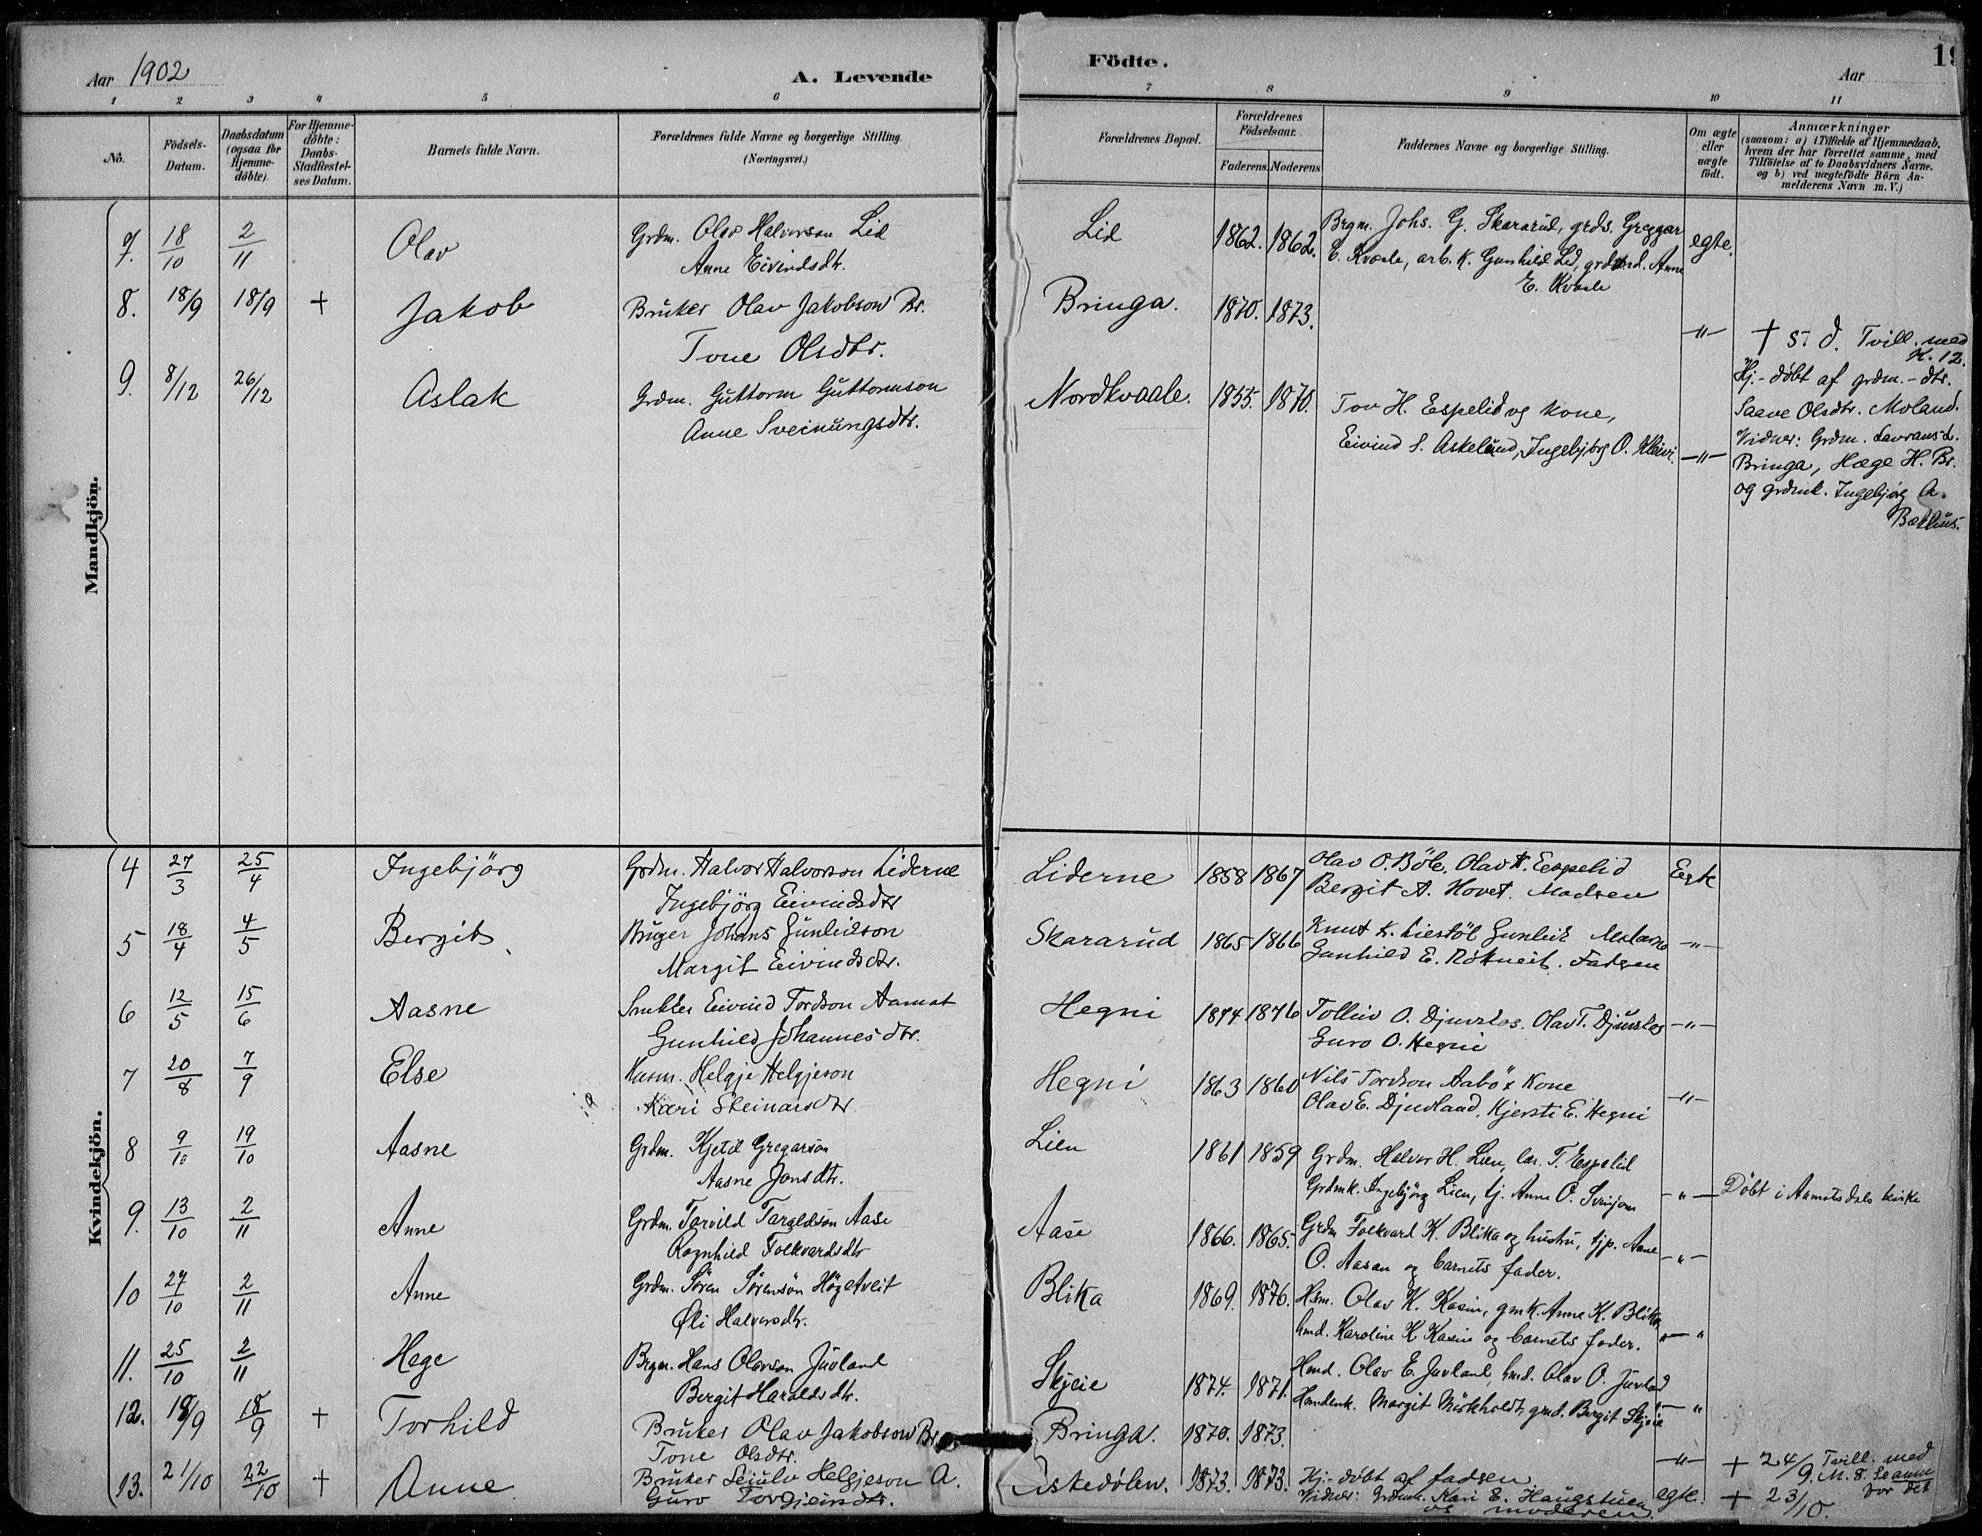 Aar 1902
A. Levende
Födte.
Aar
19
1 2 3 4 5 6 7 8 9 10 11
No.
Födsels-Datum.
Daabsdatum (ogsaa for Hjemme-döbte).
For Hjemme-döbte: Daabs-Stadfæstel-ses Datum.
Barnets fulde Navn.
Forældrenes fulde Navne og borgerlige Stilling.
(Næringsvei.)
Forældrenes Bopæl.
Forældrenes Födselsaar.
Faderens. Moderens
Faddernes Navne og borgerlige Stilling.
Om ægte eller uægte födt.
Anmærkninger
(saasom: a) i Tilfælde af Hjemmedaab,
hvem der har forrettet samme, med
Tilföielse af to Daabsvidners Navne.
og b) ved uægtefödte Börn An-
melderens Navn m. V.)
Mandkjön.
7. 18/10 2/11 Olav Grdm. Olav Halvorson Lid Lid 1862. 1862. Brgm. Johs. G. Skararud, grds. Greggar egte.
Anne Eivindsdtr. E. Kvaale, arb. K. Gunhild Lid, Anne
E. Kvaale
8. 18/9 18/9 + Jakob Bruker Olav Jakobson Br. Bringa. 1870. 1873. -"- † s. d. Tvill. med
Tone Olsdtr. K. 12.
Hj.-döbt af grdm.-dtr.
9. 8/12 26/12 Aslak Grdm. Guttorm Guttormson Nordkvaale. 1855. 1870. Tov H. Espelid og kone, Saave Olsdtr. Moland.
Anne Sveinungsdtr. Eivind S. Askelund, Ingebjörg O. Kleivi. -"- Vidner: Grdm. Lavrans L.
Bringa, Hæge H. Br.
og grdmk. Ingebjörg A.
Bakhus.
Kvindekjön.
4 27/3 25/4 Ingebjörg Grdm. Halvor Halvorson Liderne Liderne 1858 1867 Olav O. Böle, Olav K. Espelid Egte
Ingebjörg Eivindsdtr Bergit A. Hovet. Madsen
5 18/4 4/5 Bergit Bruger Johans Gunleikson Skararud 1865 1866 Knut K. Liestöl Gunleik Moland -"-
Margit Eivindsdtr. Gunhild E. Fadren
6 12/5 15/6 Aasne Smkler Eivind Tordson Aamot Hegni 1874 1876 Tolleiv O. Djuvstos. Olav T. Djuvstos -"-
Gunhild Johannesdtr. Guro O. Hegni
7 20/8 7/9 Else Husm. Helgje Helgjeson Hegni 1863 1860 Nils Tordson Aabö & Kone -"-
Kari Steinarsdtr Olav E. Djuvland, Kjersti E. Hegni
8 9/10 19/10 Aasne Grdm. Kjetil Gregarson Lien 1861 1859 Grdm. Halvor H. Lien, lær. T. Espelid
Aasne Jonsdtr. Grdmk. Ingebjörg Lien, tj. Anne O. -"- Döbt i Aamotsdals kirke
9. 13/10 2/11 Anne Grdm. Tarvild Taraldson Aase Aase 1866. 1865. Grdm Folkvard K. Blika og hustru, tjp. Aane -"-
Ragnhild Folkvardsdtr O. Aasan og barnets fader.
10 27/10 2/11 Anne Grdm. Sören Sörenson Högetveit Blika 1869. 1876. Hsm. Olav K. Kasin, gmk. Anne K. Blika,
Öli Halvorsdtr. hmd. Karoline K Kasin og barnets fader. "-"
11. 25/10 2/11 Hege Brgm. Hans Olavson Juvland Skjeie 1874. 1871. Hmd. Olav E. Juvland, hmd. Olav O. Juvlad
Bergit Haraldsdtr. Hmdenk. Margit Mörkholdt, gmd. Bergit Skjeie "-"
12. 18/9 18/9 + Torhild Bruker Olav Jakobson Br. Bringa. 1870. 1873. -"- + 24/9. Tvill. med
Tone Olsdtr. M. 8. Se anm
for det
13. 21/10 22/10 + Anne Bruker Leiulv Helgjeson A. Askedølen. 1873. 1873. Hj.-döbt af fadren egte. + 23/10.
Guro Torgjeirsdtr. Vidner: Grdmk. Kari E. Haugstuen
og moderen.